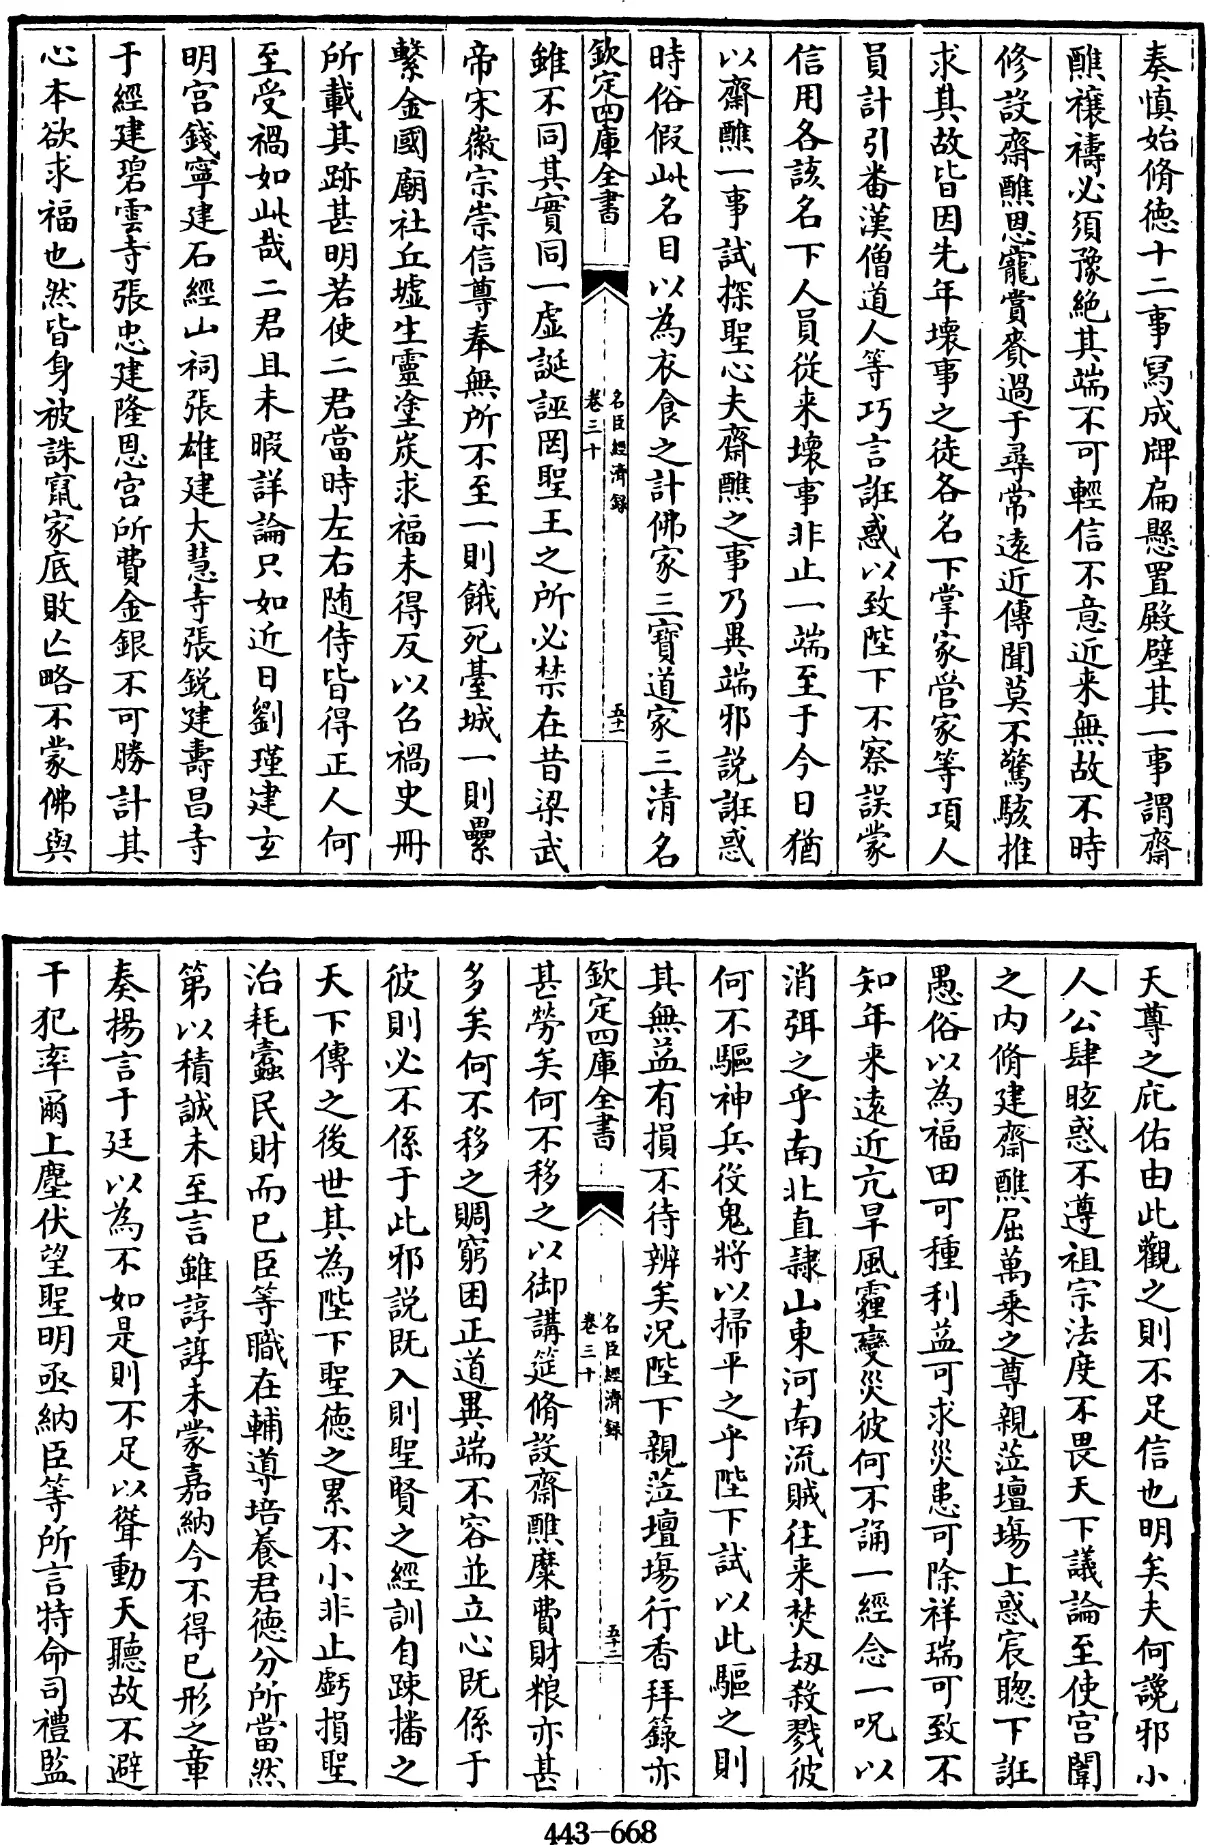 奏慎始脩徳十二事寫成牌扁懸置殿壁其一事謂齋
醮禳禱必須豫絶其端不可輕信不意近来無故不時
修設齋醮恩寵賞賚過于尋常遠近傳聞莫不驚駭推
求其故皆因先年壞事之徒各名下掌家管家等項人
員計引番漢僧道人等巧言誑惑以致陛下不察誤蒙
信用各該名下人員從来壊事非止一端至于今日猶
以齋醮一事試探聖心夫齋醮之事乃異端邪說誑惑
時俗假此名目以為衣食之計佛家三寳道家三清名
欽定四庫全書
名臣經濟録
卷三十
五十一
雖不同其實同一虚誕誣罔聖王之所必禁在昔梁武
帝宋徽宗崇信尊奉無所不至一則餓死臺城一則纍
繫金國廟社丘墟生靈塗炭求福未得反以召禍史冊
所載其跡甚明若使二君當時左右随侍皆得正人何
至受禍如此哉二君且未暇詳論只如近日劉瑾建玄
明宫錢寧建石經山祠張雄建大慧寺張銳建壽昌寺
于經建碧雲寺張忠建隆恩宫所費金銀不可勝計其
心本欲求福也然皆身被誅竄家底敗亡略不蒙佛與
天尊之庇佑由此觀之則不足信也明矣夫何讒邪小
人公肆眩惑不遵祖宗法度不畏天下議論至使宫闈
之内脩建齋醮屈萬乗之尊親蒞壇塲上惑宸聰下誑
愚俗以為福田可種利益可求災患可除祥瑞可致不
知年来遠近亢旱風霾變災彼何不誦一經念一呪以
消弭之乎南北直隸山東河南流賊往来焚劫殺戮彼
何不驅神兵役鬼將以掃平之乎陛下試以此驅之則
其無益有損不待辨矣况陛下親蒞壇塲行香拜籙亦
欽定四庫全書
名臣經濟録
卷三十
五十二
甚勞矣何不移之以御講筵脩設齋醮糜費財粮亦甚
多矣何不移之賙窮困正道異端不容並立心既係于
彼則必不係于此邪説既入則聖賢之經訓自踈播之
天下傳之後世其為陛下聖徳之累不小非止虧損聖
治耗蠹民財而已臣等職在輔導培養君徳分所當然
第以積誠未至言雖諄諄未蒙嘉納今不得已形之章
奏揚言于廷以為不如是則不足以聳動天聽故不避
干犯率爾上塵伏望聖明亟納臣等所言特命司禮監
443-668